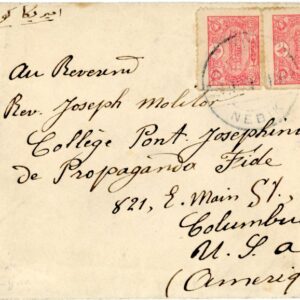 Au Reverend
Rev. Joseph Molitor
Collège Pont. Josephin
de Propaganda Fide
821, E. Main St,
Columbu
U. S. a
(Ameriq